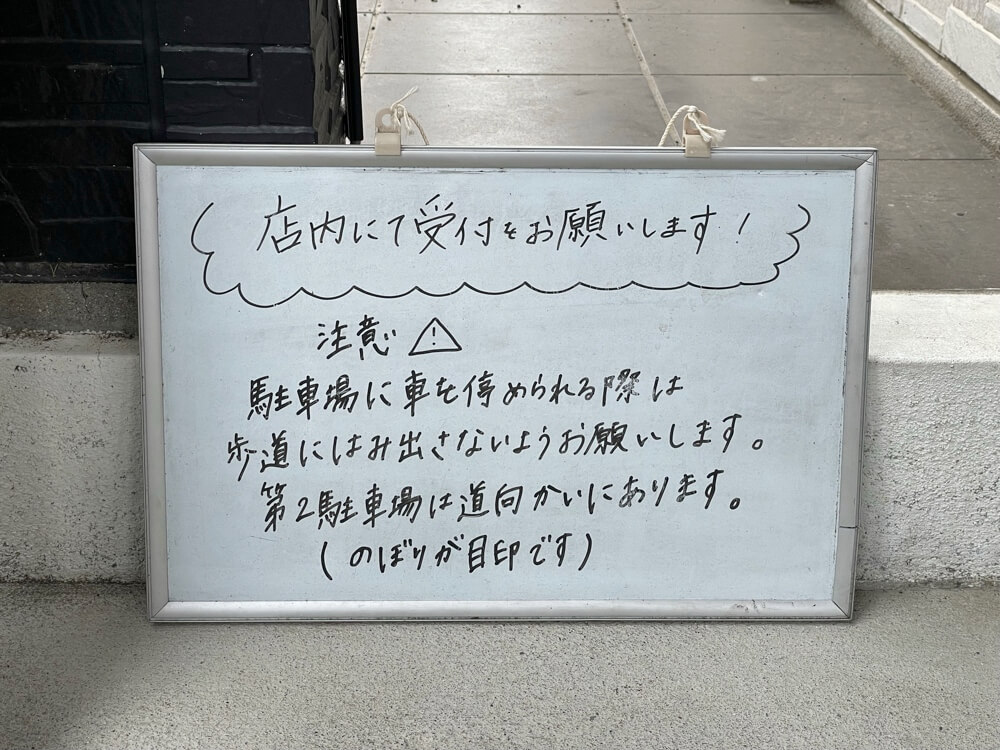 店内にて受付をお願いします!
注意 ⚠
駐車場に車を停められる際は
歩道にはみ出さないようお願いします。
第2駐車場は道向かいにあります。
(のぼりが目印です)